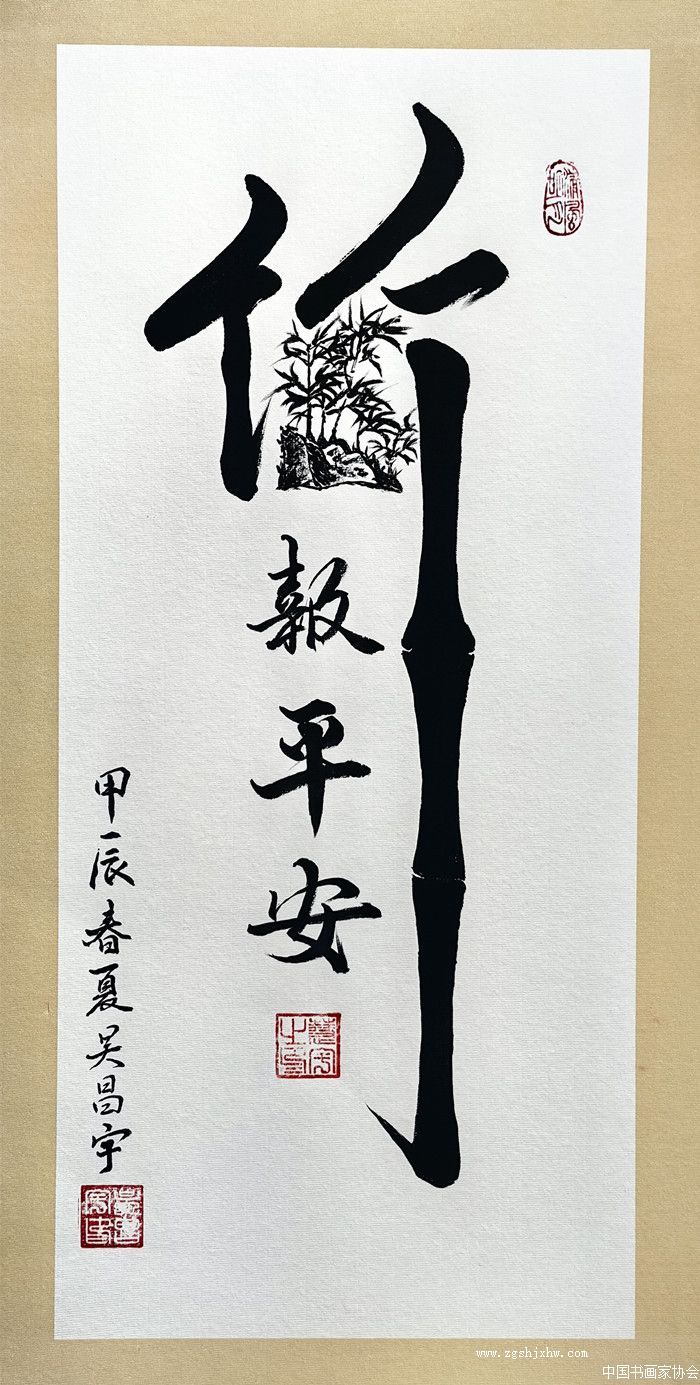 竹
報平安
甲辰春夏吴昌宇
www.zgshjxhw.com
中国书画家协会